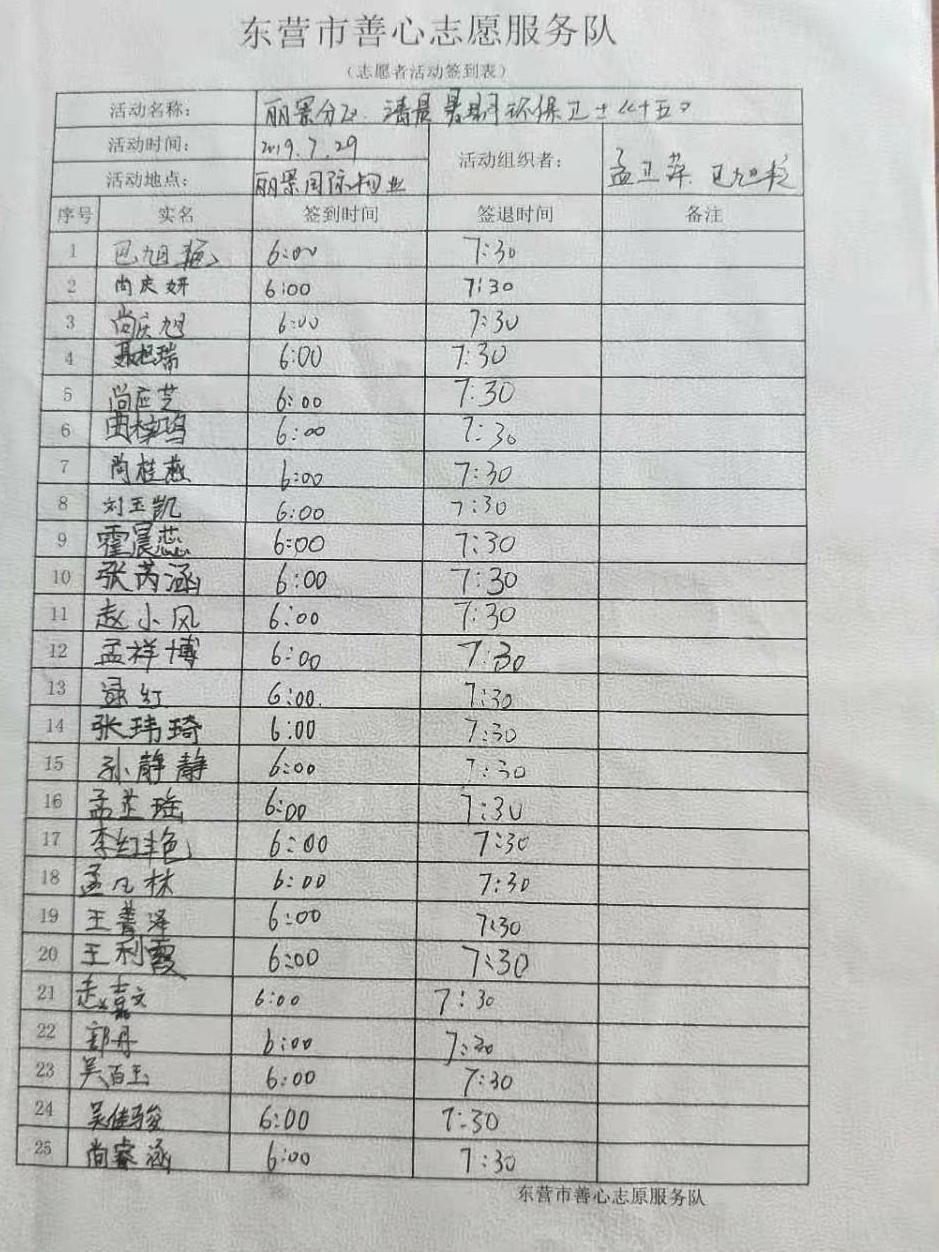 东营市善心志愿服务队
（志愿者活动签到表）
活动名称： 丽景分队 清晨 环保卫士
活动时间： 2019.7.29 活动组织者： 孟卫萍
活动地点： 丽景国际物业
序号 实名 签到时间 签退时间 备注
1 巴旭艳 6:00 7:30
2 尚庆妍 6:00 7:30
3 尚庆旭 6:00 7:30
4 6:00 7:30
5 尚应芝 6:00 7:30
6 曲梓 6:00 7:30
7 尚桂燕 6:00 7:30
8 刘玉凯 6:00 7:30
9 霍宸蕊 6:00 7:30
10 张芮涵 6:00 7:30
11 赵小风 6:00 7:30
12 孟祥博 6:00 7:30
13 红 6:00. 7:30
14 张玮琦 6:00 7:30
15 孙静静 6:00 7:30
16 孟芷瑶 6:00 7:30
17 李红艳 6:00 7:30
18 孟凡林 6:00 7:30
19 王善泽 6:00 7:30
20 王利霞 6:00 7:30
21 赵嘉文 6:00 7:30
22 郭丹 6:00 7:30
23 吴百玉 6:00 7:30
24 吴佳骏 6:00 7:30
25 尚睿涵 6:00 7:30
东营市善心志原服务队